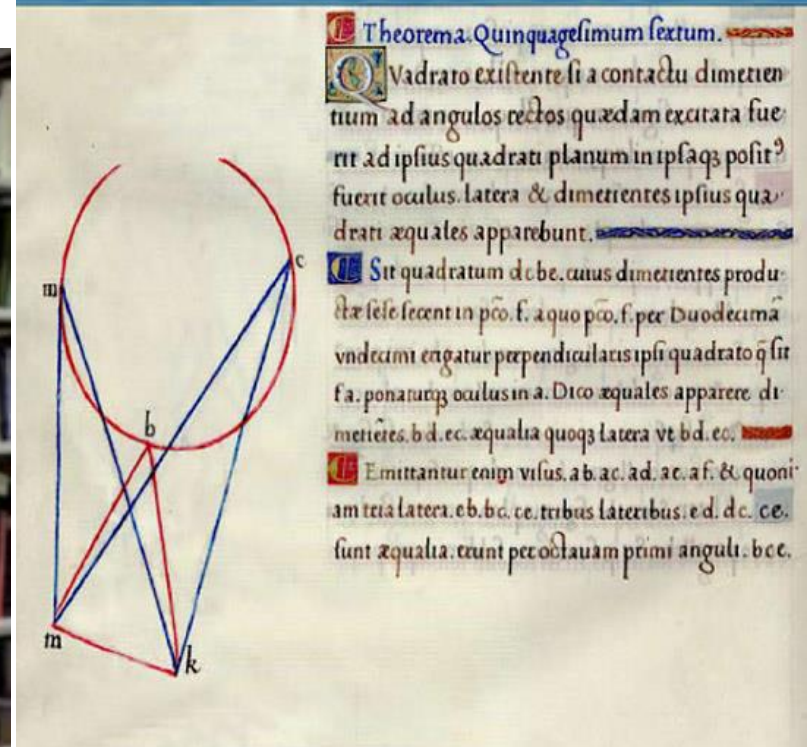 Theorema. Quinquagesimum sextum.
QVadrato existente si a contactu dimetien
tium ad angulos rectos quædam excitata fue
rit ad ipsius quadrati planum in ipsaqꝫ posit⁹
fuerit oculus. latera & dimetientes ipsius qua
drati æquales apparebunt.
Sit quadratum dcbe. cuius dimetientes produ
ctæ sese secent in pc̃o. f. a quo pc̃o. f. per Duodecimã
vndecimi erigatur perpendicularis ipsi quadrato q̃ sit
fa. ponaturqꝫ oculus in a. Dico æquales apparere di
metiẽtes. bd. ec. æqualia quoqꝫ latera vt bd. ec.
Emittantur enim visus. ab. ac. ad. ae. af. & quoni
am tria latera. eb. bc. ce. tribus lateribus. ed. dc. ce.
sunt æqualia. erunt per octauam primi anguli. bce.
m
c
b
m
k